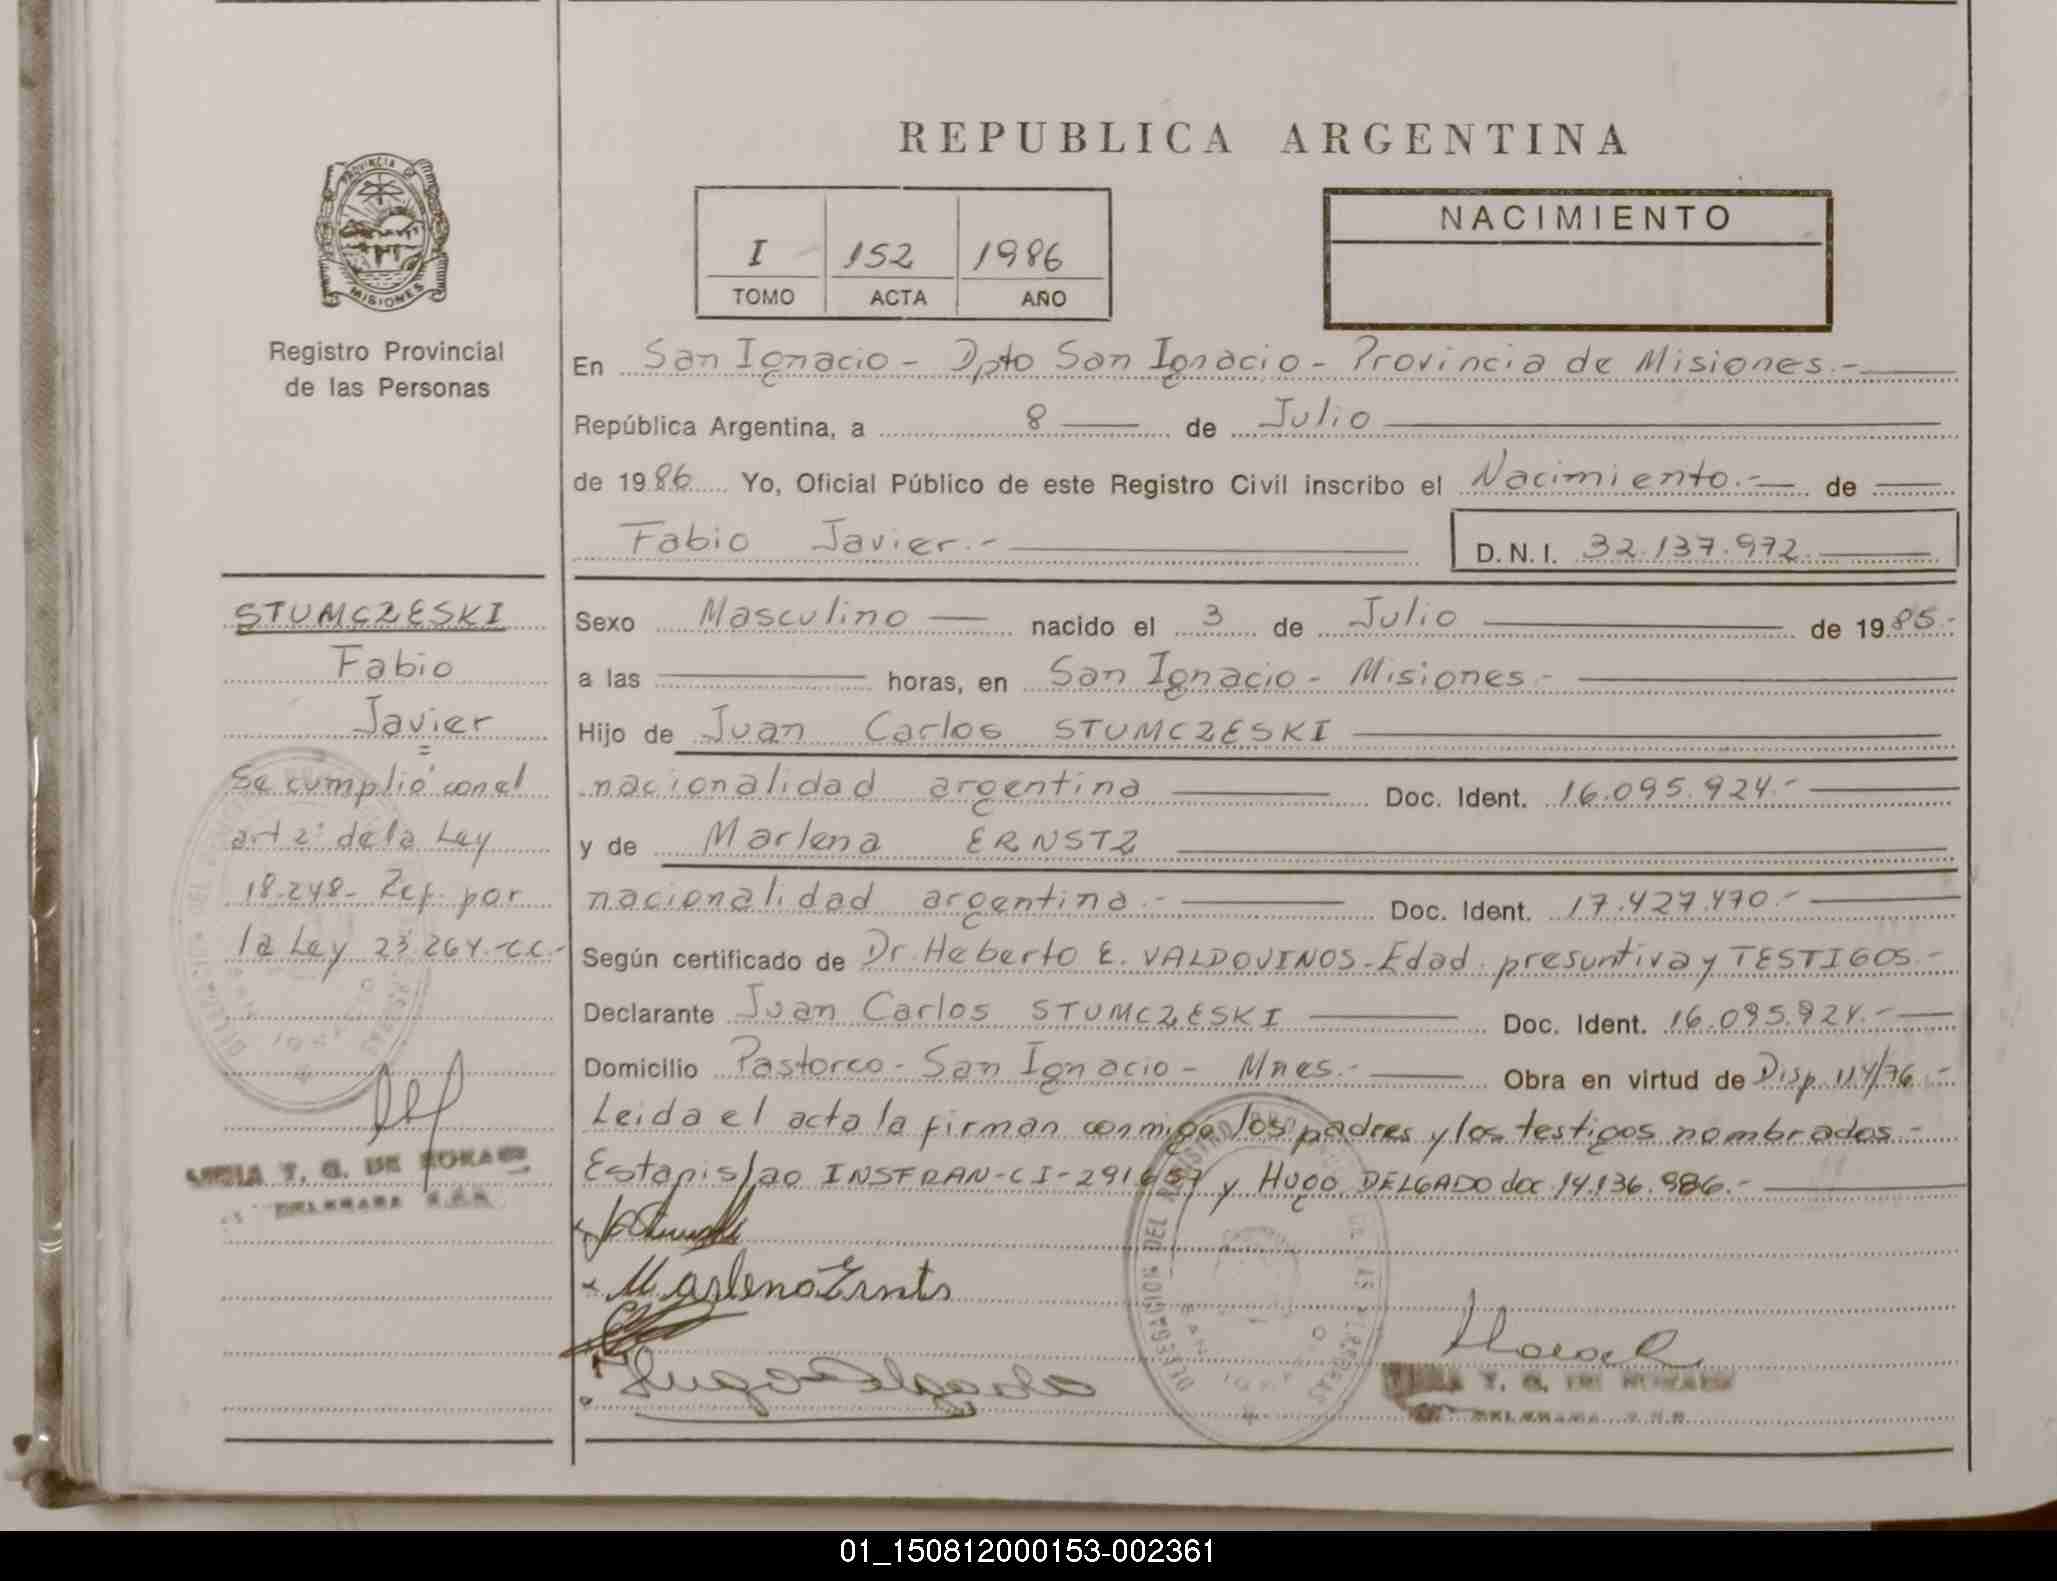 REPUBLICA ARGENTINA
PROVINCIA DE
MISIONES
Registro Provincial
de las Personas
I 152 1986
TOMO ACTA AÑO
NACIMIENTO
En San Ignacio - Dpto San Ignacio - Provincia de Misiones.-
República Argentina, a 8 de Julio
de 1986 Yo, Oficial Público de este Registro Civil inscribo el Nacimiento.- de
Fabio Javier.-
D.N.I. 32.137.972.
STUMCZESKI
Fabio
Javier
Se cumplió con el
art 2° de la Ley
18.248- Ref. por
la Ley 23.264.-cc.-
Sexo Masculino nacido el 3 de Julio de 1985.-
a las horas, en San Ignacio - Misiones.-
Hijo de Juan Carlos STUMCZESKI
nacionalidad argentina Doc. Ident. 16.095.924.-
y de Marlena ERNSTZ
nacionalidad argentina.- Doc. Ident. 17.427.470.-
Según certificado de Dr. Heberto E. VALDOVINOS-Edad presuntiva y TESTIGOS.-
Declarante Juan Carlos STUMCZESKI Doc. Ident. 16.095.924.-
Domicilio Pastoreo - San Ignacio - Mnes.- Obra en virtud de Disp. 114/76.-
Leida el acta la firman conmigo los padres y los testigos nombrados -
Estanislao INSFRAN-CI-291657 y Hugo DELGADO doc 14.136.986.-
Marlena Ernts
Hugo Delgado
T. G. DE
DELEGADA
T. G. DE
DELEGADA
DELEGACION DEL REGISTRO PROVINCIAL DE LAS PERSONAS
SAN IGNACIO
01_150812000153-002361